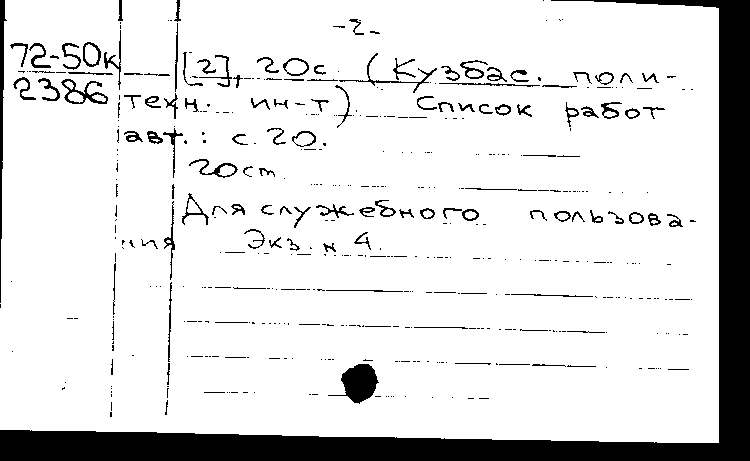 -2-
72-50к
2386
[2], 20с. (Кузбас. поли-
техн. ин-т). Список работ
авт.: с. 20.
20см.
Для служебного пользова-
ния Экз. N 4.